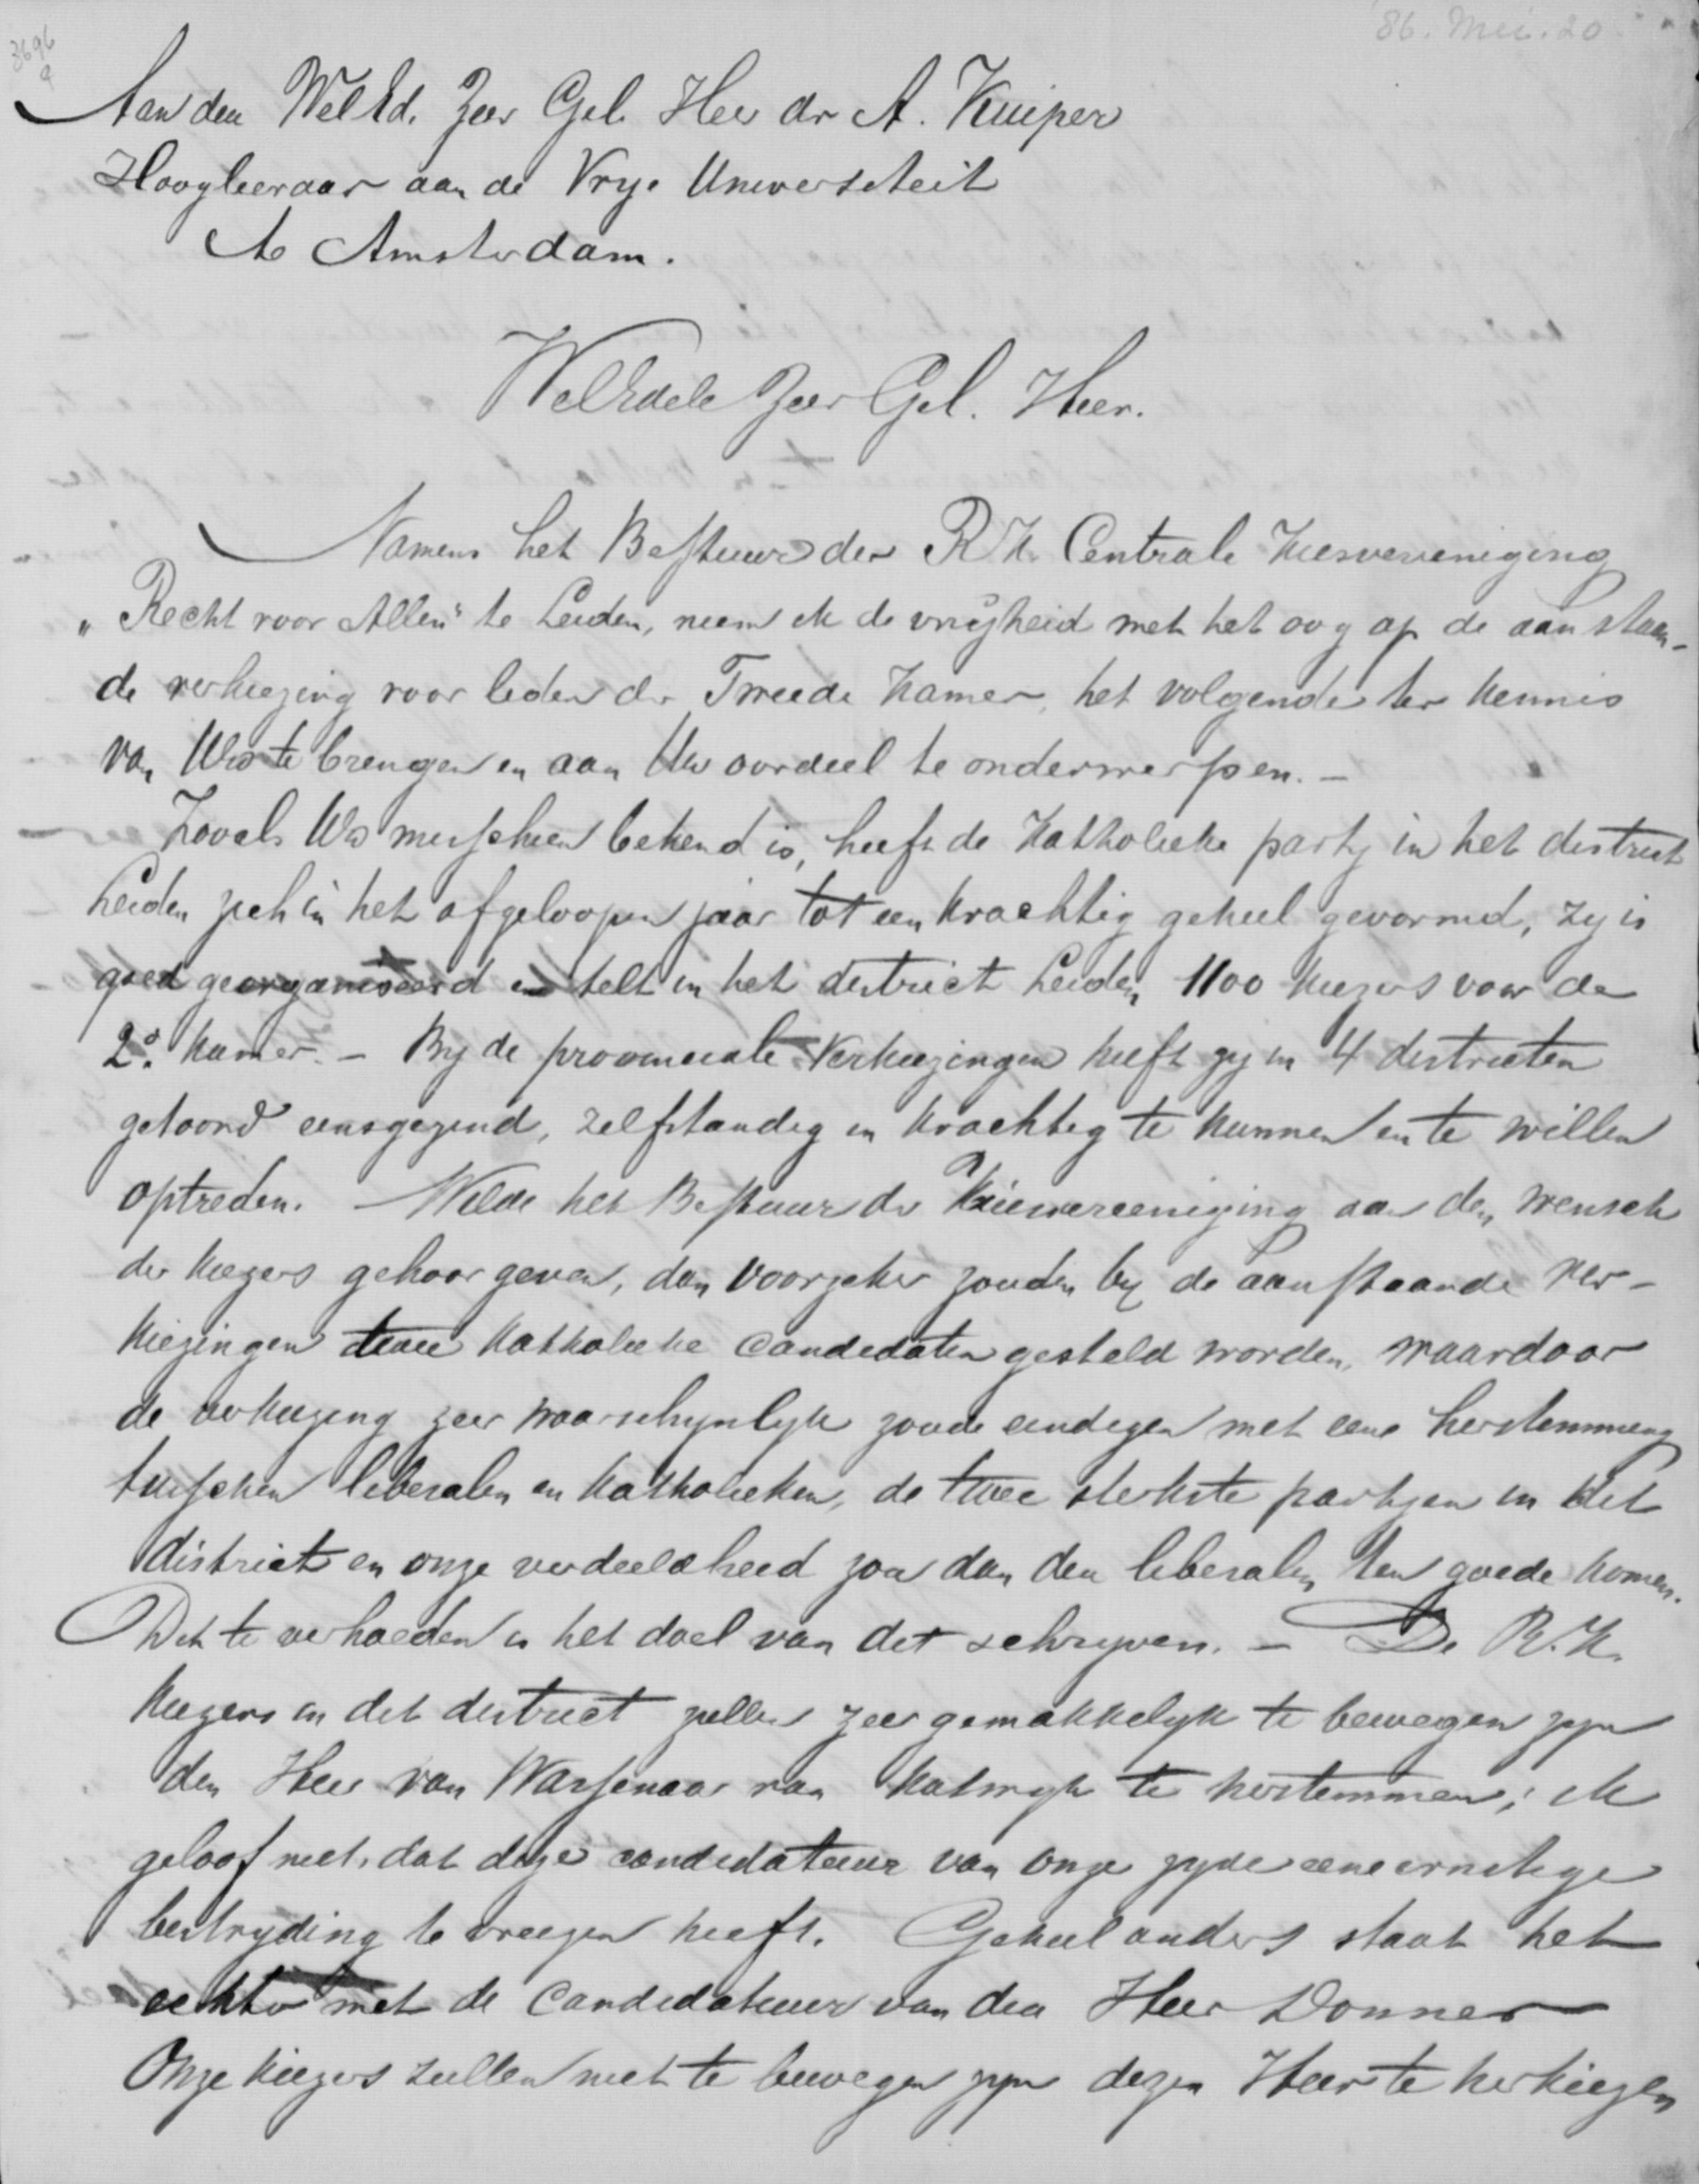 '86. Mei. 20.
3696
a
Aan den WelEd. Zeer Gel. Heer dr A. Kuiper
Hoogleeraar aan de Vrye Universiteit
te Amsterdam.
WelEdele Zeer Gel. Heer.
Namens het Bestuur der R. K. Centrale Kiesvereeniging
„Recht voor Allen" te Leiden, neem ik de vrijheid met het oog op de aanstaan-
de verkiezing voor leden der Tweede Kamer, het volgende ter kennis
van Uw te brengen en aan Uw oordeel te onderwerpen. –
Zooals Uw misschien bekend is, heeft de Katholieke party in het district
Leiden zich in het afgeloopen jaar tot een krachtig geheel gevormd, zy is
goed georganiseerd en telt in het district Leiden 1100 kiezers voor de
2e. Kamer. – By de provinciale verkiezingen heeft zy in 4 districten
getoond eensgezind, zelfstandig en krachtig te kunnen en te willen
optreden. – Wilde het Bestuur der Kiesvereeniging aan den wensch
der kiezers gehoor geven, dan voorzeker zouden by de aanstaande ver-
kiezingen twee Katholieke candidaten gesteld worden, waardoor
de verkiezing zeer waarschynlyk zoude eindigen met eene herstemming
tusschen liberalen en Katholieken, de twee sterkste partyen in dit
district en onze verdeeldheid zou dan den liberalen ten goede komen.
Dit te verhoeden is het doel van dit schryven. – De R. K.
kiezers in dit district zullen zeer gemakkelyk te bewegen zyn
den Heer van Wassenaar van Katwyk te herstemmen; ik
geloof niet, dat deze candidatuur van onze zyde eene ernstige
bestryding te vreezen heeft. Geheel anders staat het
echter met de Candidatuur van den Heer Donner
Onze kiezers zullen niet te bewegen zyn dezen Heer te herkiezen